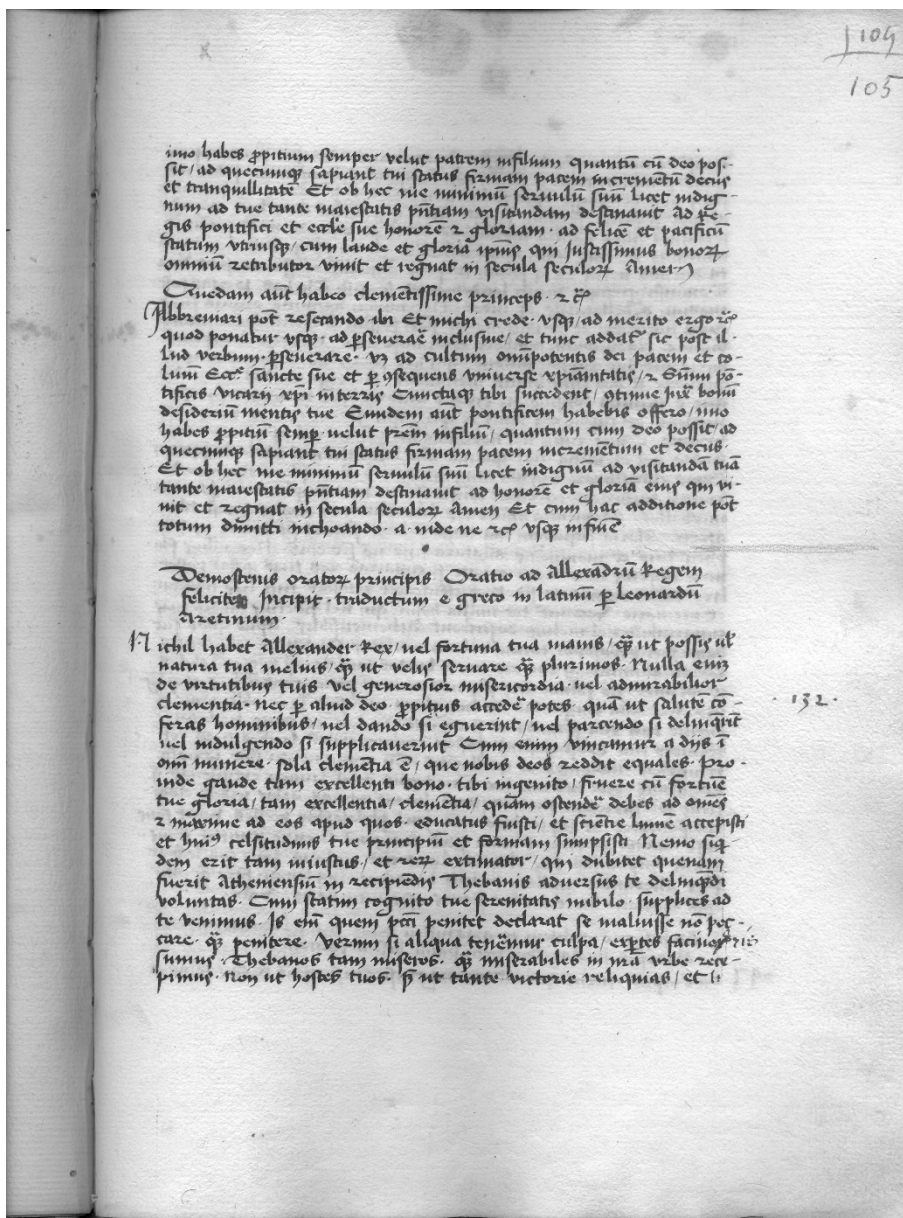 109
105
imo habes ꝓpitium semper velut patrem in filium quantū cū deo pos-
sit / ad quecumqꝫ sapiant tui status firmam pacem incremētū decus
et tranquillitatē Et ob hec me minimū servulū suū licet indig-
num ad tue tante maiestatis pn̄tiam visitandam destinavit Ad Re-
gis pontifici et eccl̄e sue honorē ⁊ gloriam · ad felicē et pacificū
statum utriusqꝫ / cum laude et gloria ip̄ius qui Justissimus bonoꝝ
omniū retributor vivit et regnat in secula seculoꝝ Amen
Quedam aūt habeo clemētissime princeps · ⁊ c̄
Abbreviari pōt resecando ibi Et michi crede · usqꝫ / ad merito ergo ⁊c̄
quod ponatur usqꝫ · ad ꝑseverare inclusive / et tunc addat᷑ sic post il-
lud verbum · ꝑseverare · vꝫ ad cultum om̄ipotentis dei pacem et co-
lumē Ecc̄e sancte sue et ꝑ ꝯsequens universe xp̄ianitatis / ⁊ Sūmi po-
tificis vicarii xp̄i in terris Cunctaqꝫ tibi succedent / ꝯtinue iux̄ bonū
desideriū mentis tue Eundem aūt pontificem habebis offero / imo
habes ꝓpitiū semꝑ velut pr̄em in filiū / quantum cum deo possit / ad
quecumqꝫ sapiant tui status firmam pacem incremētum et decus ·
Et ob hec me minimū servulū suū licet indignū ad visitandā tuā
tante maiestatis pn̄tiam destinavit ad honorē et gloriā eius qui vi-
vit et regnat in secula seculoꝝ Amen Et cum hac additione pōt
totum dimitti inchoando · a · inde ne ⁊c̄ usqꝫ in finē
Demostenis oratoꝝ principis Oratio ad Allexādrū Regem
feliciter Incipit · traductum e greco in latinū ꝑ leonardū
Aretinum ·
Nichil habet Allexander Rex / vel fortuna tua maius / qꝫ̄ ut possis ul̄
natura tua melius / qꝫ̄ ut velis servare qꝫ̄ plurimos · Nulla enīꝫ
de virtutibus tuis vel generosior misericordia · vel admirabilior
clementia · nec ꝑ aliud deo ꝓpitius accedē potes · quā ut salutē cō-
feras hominibus / vel dando si eguerint / vel parcendo si delinq̄rīt
vel indulgendo si supplicaveriūt Cum enim vincamur a dijs ī
om̄i munere · sola clemētia ē / que nobis deos reddit equales · Pro-
inde gaude tam excellenti bono · tibi ingenito / fruere cū fortūe
tue gloria / tam excellentia / clemētia / quam ostendē debes ad om̄es
⁊ maxime ad eos apud quos · educatus fuisti / et sciētie lumē accepisti
et huiꝰ celsitudinis tue principiū et formam sumpsisti Nemo siq̄-
dem erit tam iniustus / et reꝝ extimator / qui dubitet quenam
fuerit Atheniensiū in recipiēdis Thebanis adversus te delinquēdi
voluntas · Cum statim cognito tue serenitatis nubilo · supplices ad
te venimus · Is enī quem pcc̄i penitet declarat se maluisse nō pec-
care · qꝫ̄ penitere · Verum si aliqua tenēmur culpa / exꝑtes facinoꝝ
sumus · Thebanos tam miseros · qꝫ̄ miserabiles in nr̄a urbe rece-
pimus · Non ut hostes tuos · sꝫ ut tante victorie reliquias / et
· 132 ·